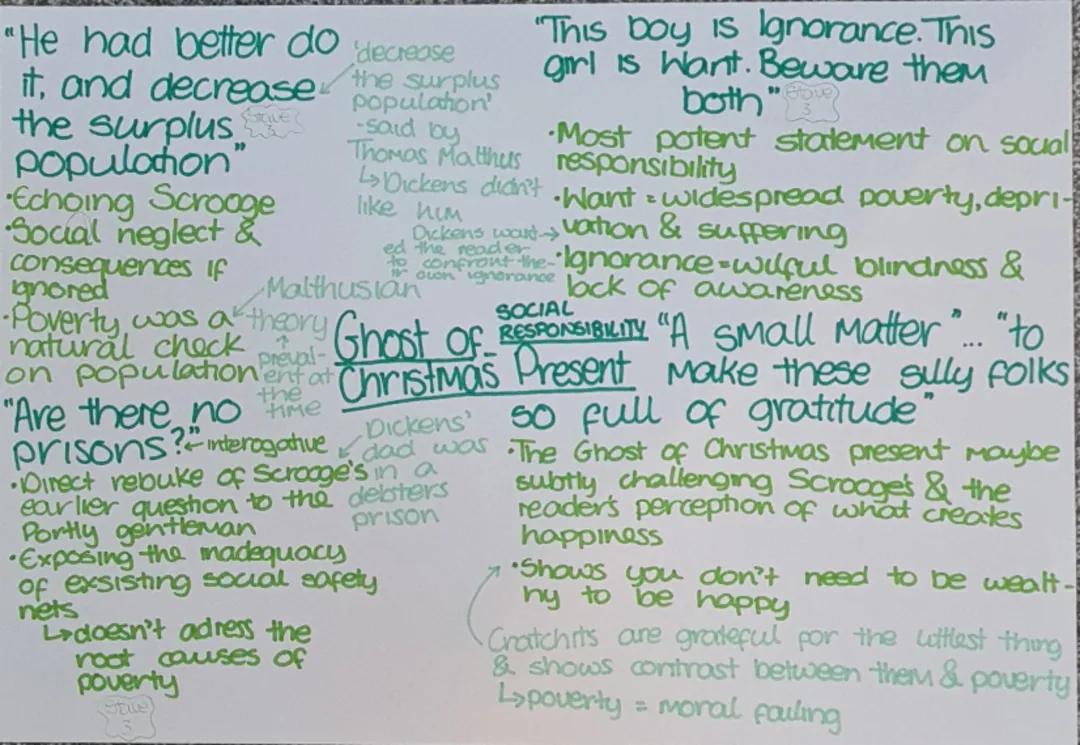 "He had better do
it, and decrease
the surplus
population"
Stave
3
•Echoing Scrooge
•Social neglect &
consequences if
ignored
•Poverty was a
natural check
on population
'decrease
the surplus
population'
-said by
Thomas Malthus
↳Dickens didn't
like him
Malthusian
theory
↑
preval-
ent at
the
time
"This boy is Ignorance. This
girl is Want. Beware them
both"
Stave
3
•Most potent statement on social
responsibility
•Want = widespread poverty, depri-
vation & suffering
•Ignorance = wilful blindness &
lack of awareness
Dickens want→
ed the reader
to confront the-
ir own ignorance
Ghost of
Christmas Present
SOCIAL
RESPONSIBILITY
"A small matter"... "to
make these silly folks
so full of gratitude"
•The Ghost of Christmas present maybe
subtly challenging Scrooge's & the
reader's perception of what creates
happiness
•Shows you don't need to be wealt-
hy to be happy
Cratchits are grateful for the littlest thing
& shows contrast between them & poverty
↳poverty = moral failing
"Are there no
prisons?" ← interogative
•Direct rebuke of Scrooge's
earlier question to the
Portly gentleman
•Exposing the inadequacy
of exsisting social safety
nets
↳doesn't adress the
root causes of
poverty
Stave
3
Dickens'
dad was
in a
debters
prison